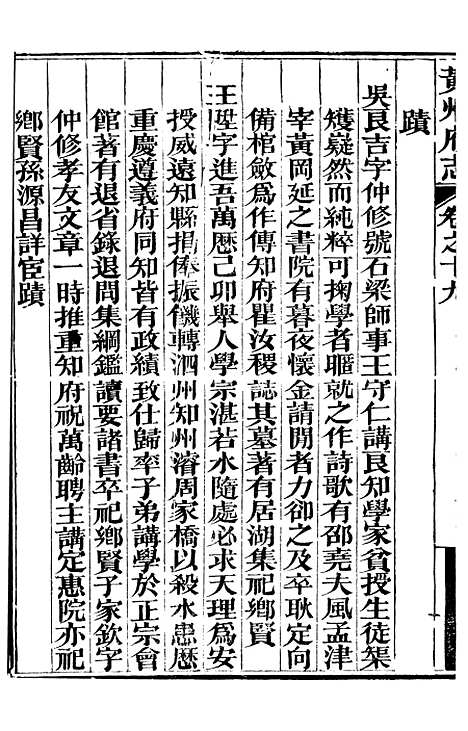 黃州府志 卷之十九
蹟
吳良吉字仲修號石梁師事王守仁講良知學家貧授生徒榘
矱嶷然而純粹可掬學者暱就之作詩歌有邵堯夫風孟津
宰黃岡延之書院有暮夜懷金請閒者力卻之及卒耿定向
備棺斂爲作傳知府瞿汝稷誌其墓著有居湖集祀鄉賢
王陞字進吾萬曆己卯舉人學宗湛若水隨處必求天理爲安
授威遠知縣捐俸振饑轉泗州知州濬周家橋以殺水患歷
重慶遵義府同知皆有政績致仕歸率子弟講學於正宗會
館著有退省錄退問集綱鑑讀要諸書卒祀鄉賢子家欽字
仲修孝友文章一時推重知府祝萬齡聘主講定惠院亦祀
鄉賢孫源昌詳宦蹟